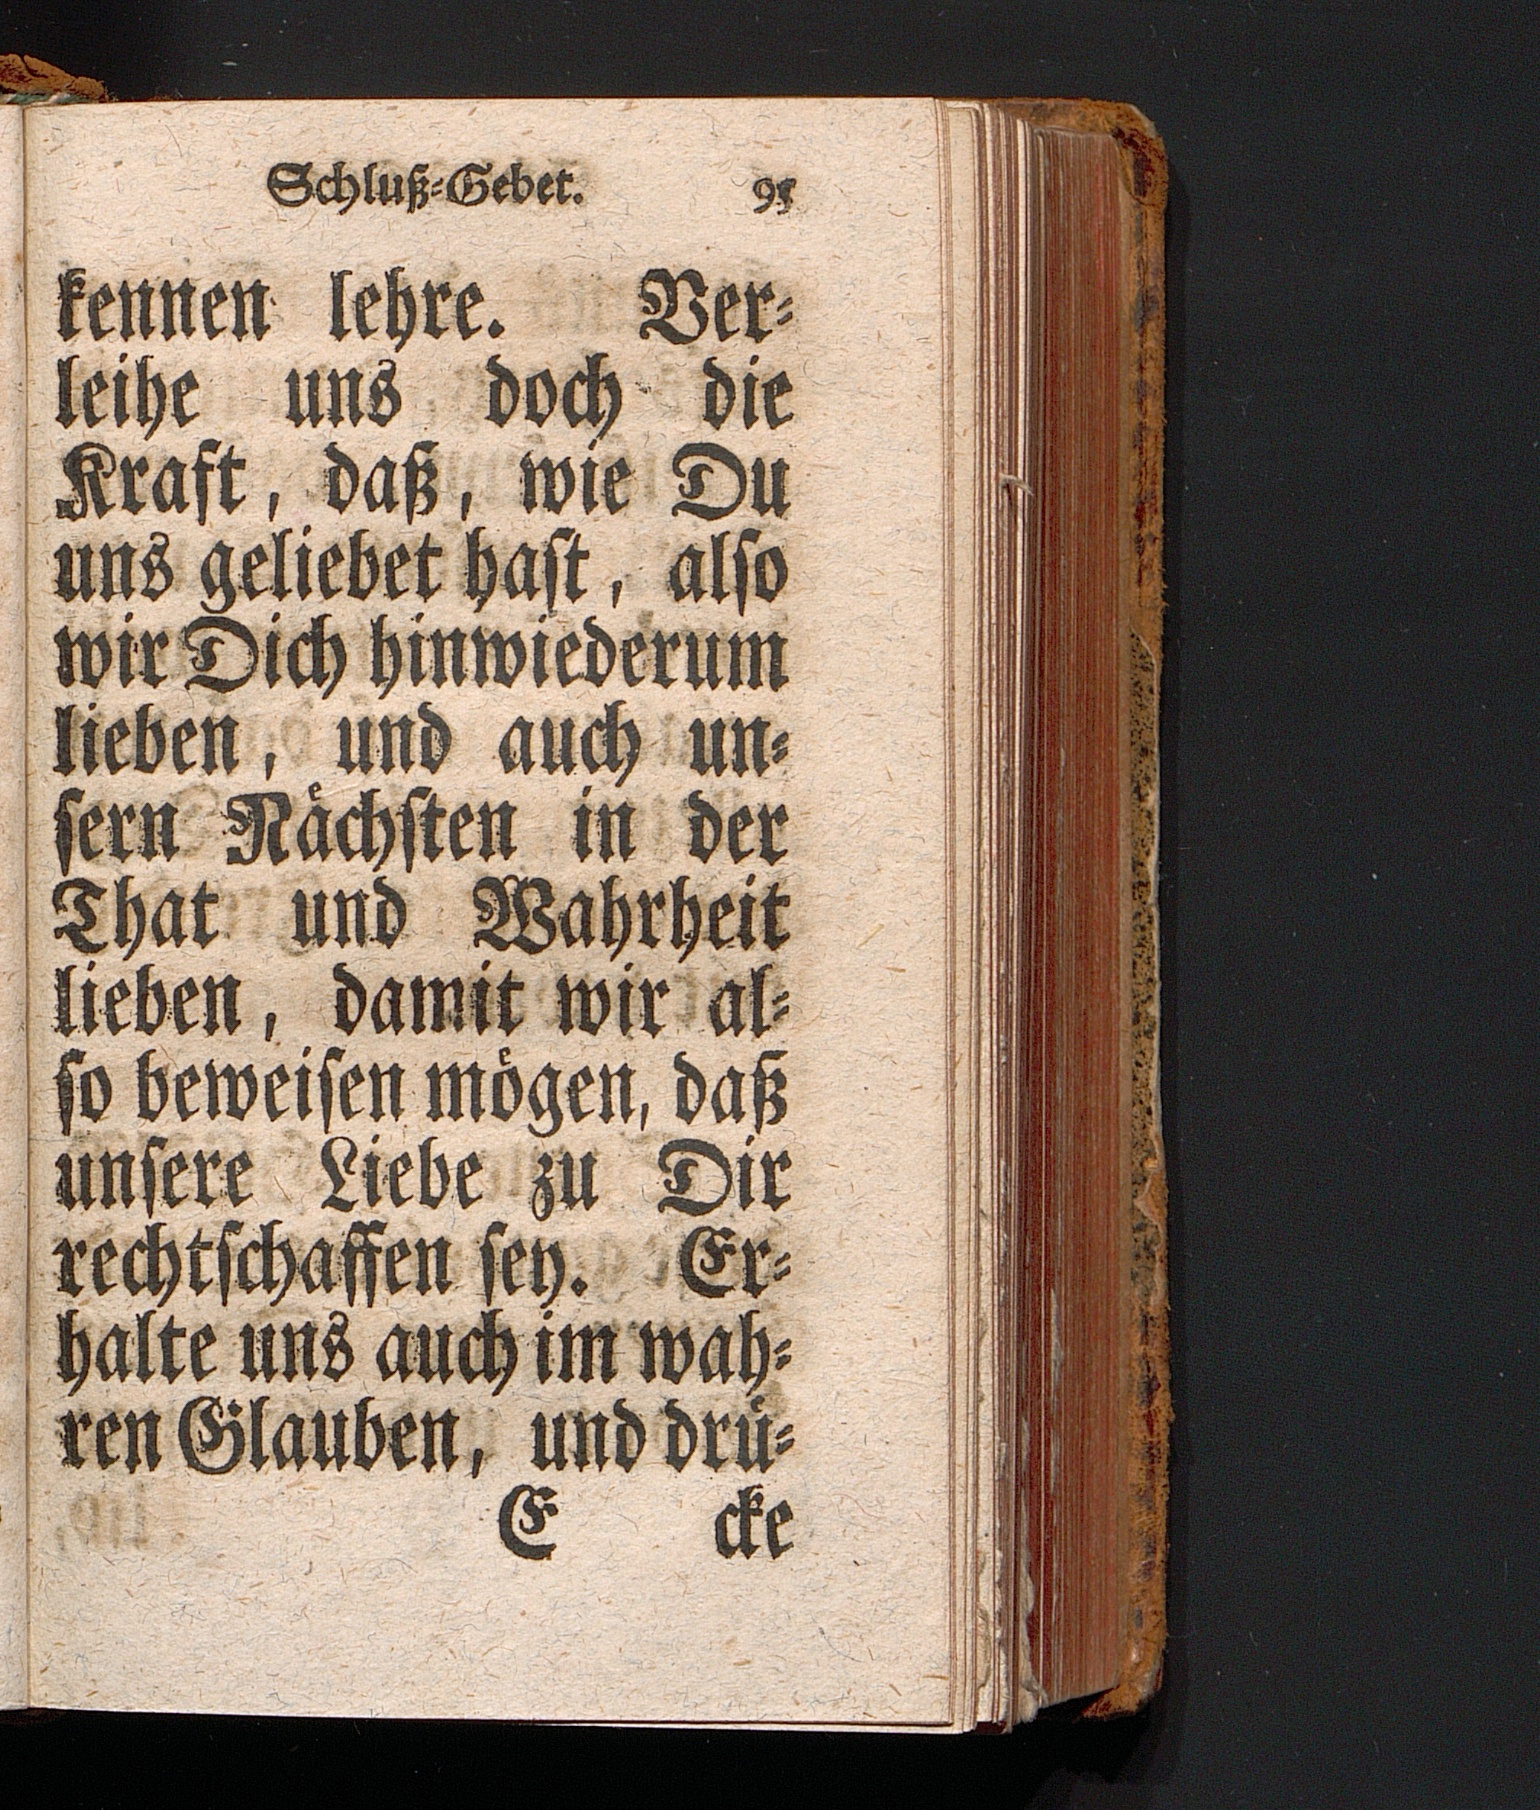 Schluß⸗Gebet. 95
kennen lehre. Ver⸗
leihe uns doch die
Kraft, daß, wie Du
uns geliebet haſt, alſo
wir Dich hinwiederum
lieben, und auch un⸗
ſern Naͤchſten in der
That und Wahrheit
lieben, damit wir al⸗
ſo beweiſen moͤgen, daß
unſere Liebe zu Dir
rechtſchaffen ſey. Er⸗
halte uns auch im wah⸗
ren Glauben, und druͤ⸗
E cke